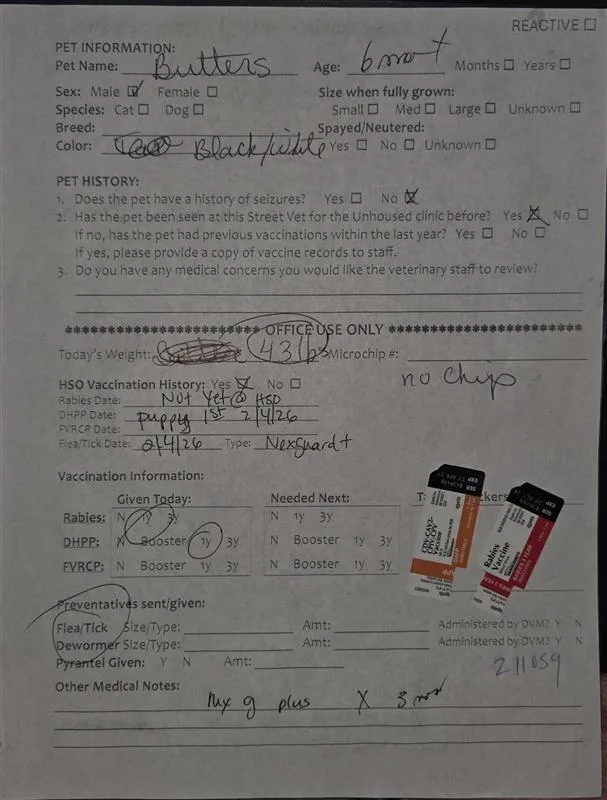 REACTIVE ☐
PET INFORMATION:
Pet Name: Butters Age: 6 mo + Months ☐ Years ☐
Sex: Male ☑ Female ☐ Size when fully grown:
Species: Cat ☐ Dog ☐ Small ☐ Med ☐ Large ☐ Unknown ☐
Breed: Spayed/Neutered:
Color: Black/White Yes ☐ No ☐ Unknown ☐
PET HISTORY:
1. Does the pet have a history of seizures? Yes ☐ No ☒
2. Has the pet been seen at this Street Vet for the Unhoused clinic before? Yes ☒ No ☐
If no, has the pet had previous vaccinations within the last year? Yes ☐ No ☐
If yes, please provide a copy of vaccine records to staff.
3. Do you have any medical concerns you would like the veterinary staff to review?
******************** OFFICE USE ONLY ********************
Today's Weight: 43 lbs Microchip #:
no chip
HSO Vaccination History: Yes ☒ No ☐
Rabies Date: Not Yet @ HSO
DHPP Date: puppy 1st 2/4/26
FVRCP Date:
Flea/Tick Date: 2/4/26 Type: Nexguard +
Vaccination Information:
Given Today: Needed Next:
Rabies: N 1y 3y N 1y 3y
DHPP: N Booster 1y 3y N Booster 1y 3y
FVRCP: N Booster 1y 3y N Booster 1y 3y
CDV-CAV2-
CPIV-CPV
VACCINE
Rabies
Vaccine
Preventatives sent/given:
Flea/Tick Size/Type: Amt: Administered by DVM? Y N
Dewormer Size/Type: Amt: Administered by DVM? Y N
Pyrantel Given: Y N Amt:
211059
Other Medical Notes:
plus X 3 mo